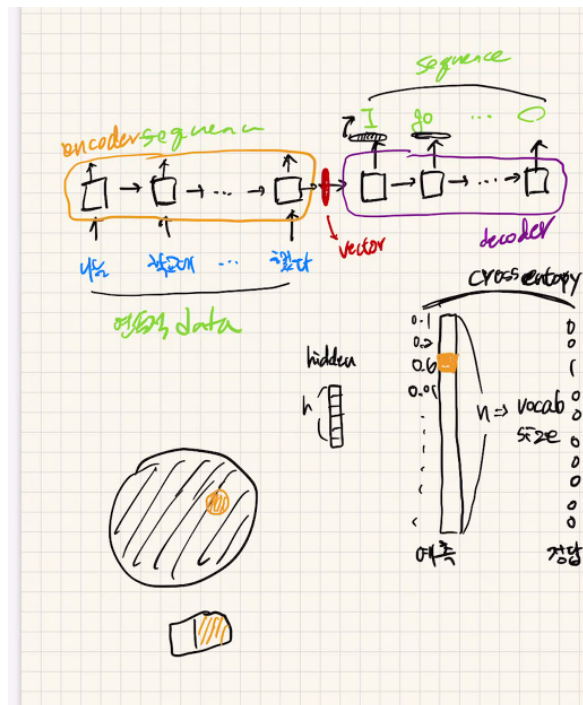 sequence
I go ... O
encoder sequence
...
...
decoder
vector
나는 학교에 ... 갔다
data
cross entropy
hidden
h
0.1
0.2
0.6
0.01
n ⇒ vocab
size
0
0
1
0
0
0
0
0
0
0
예측
정답